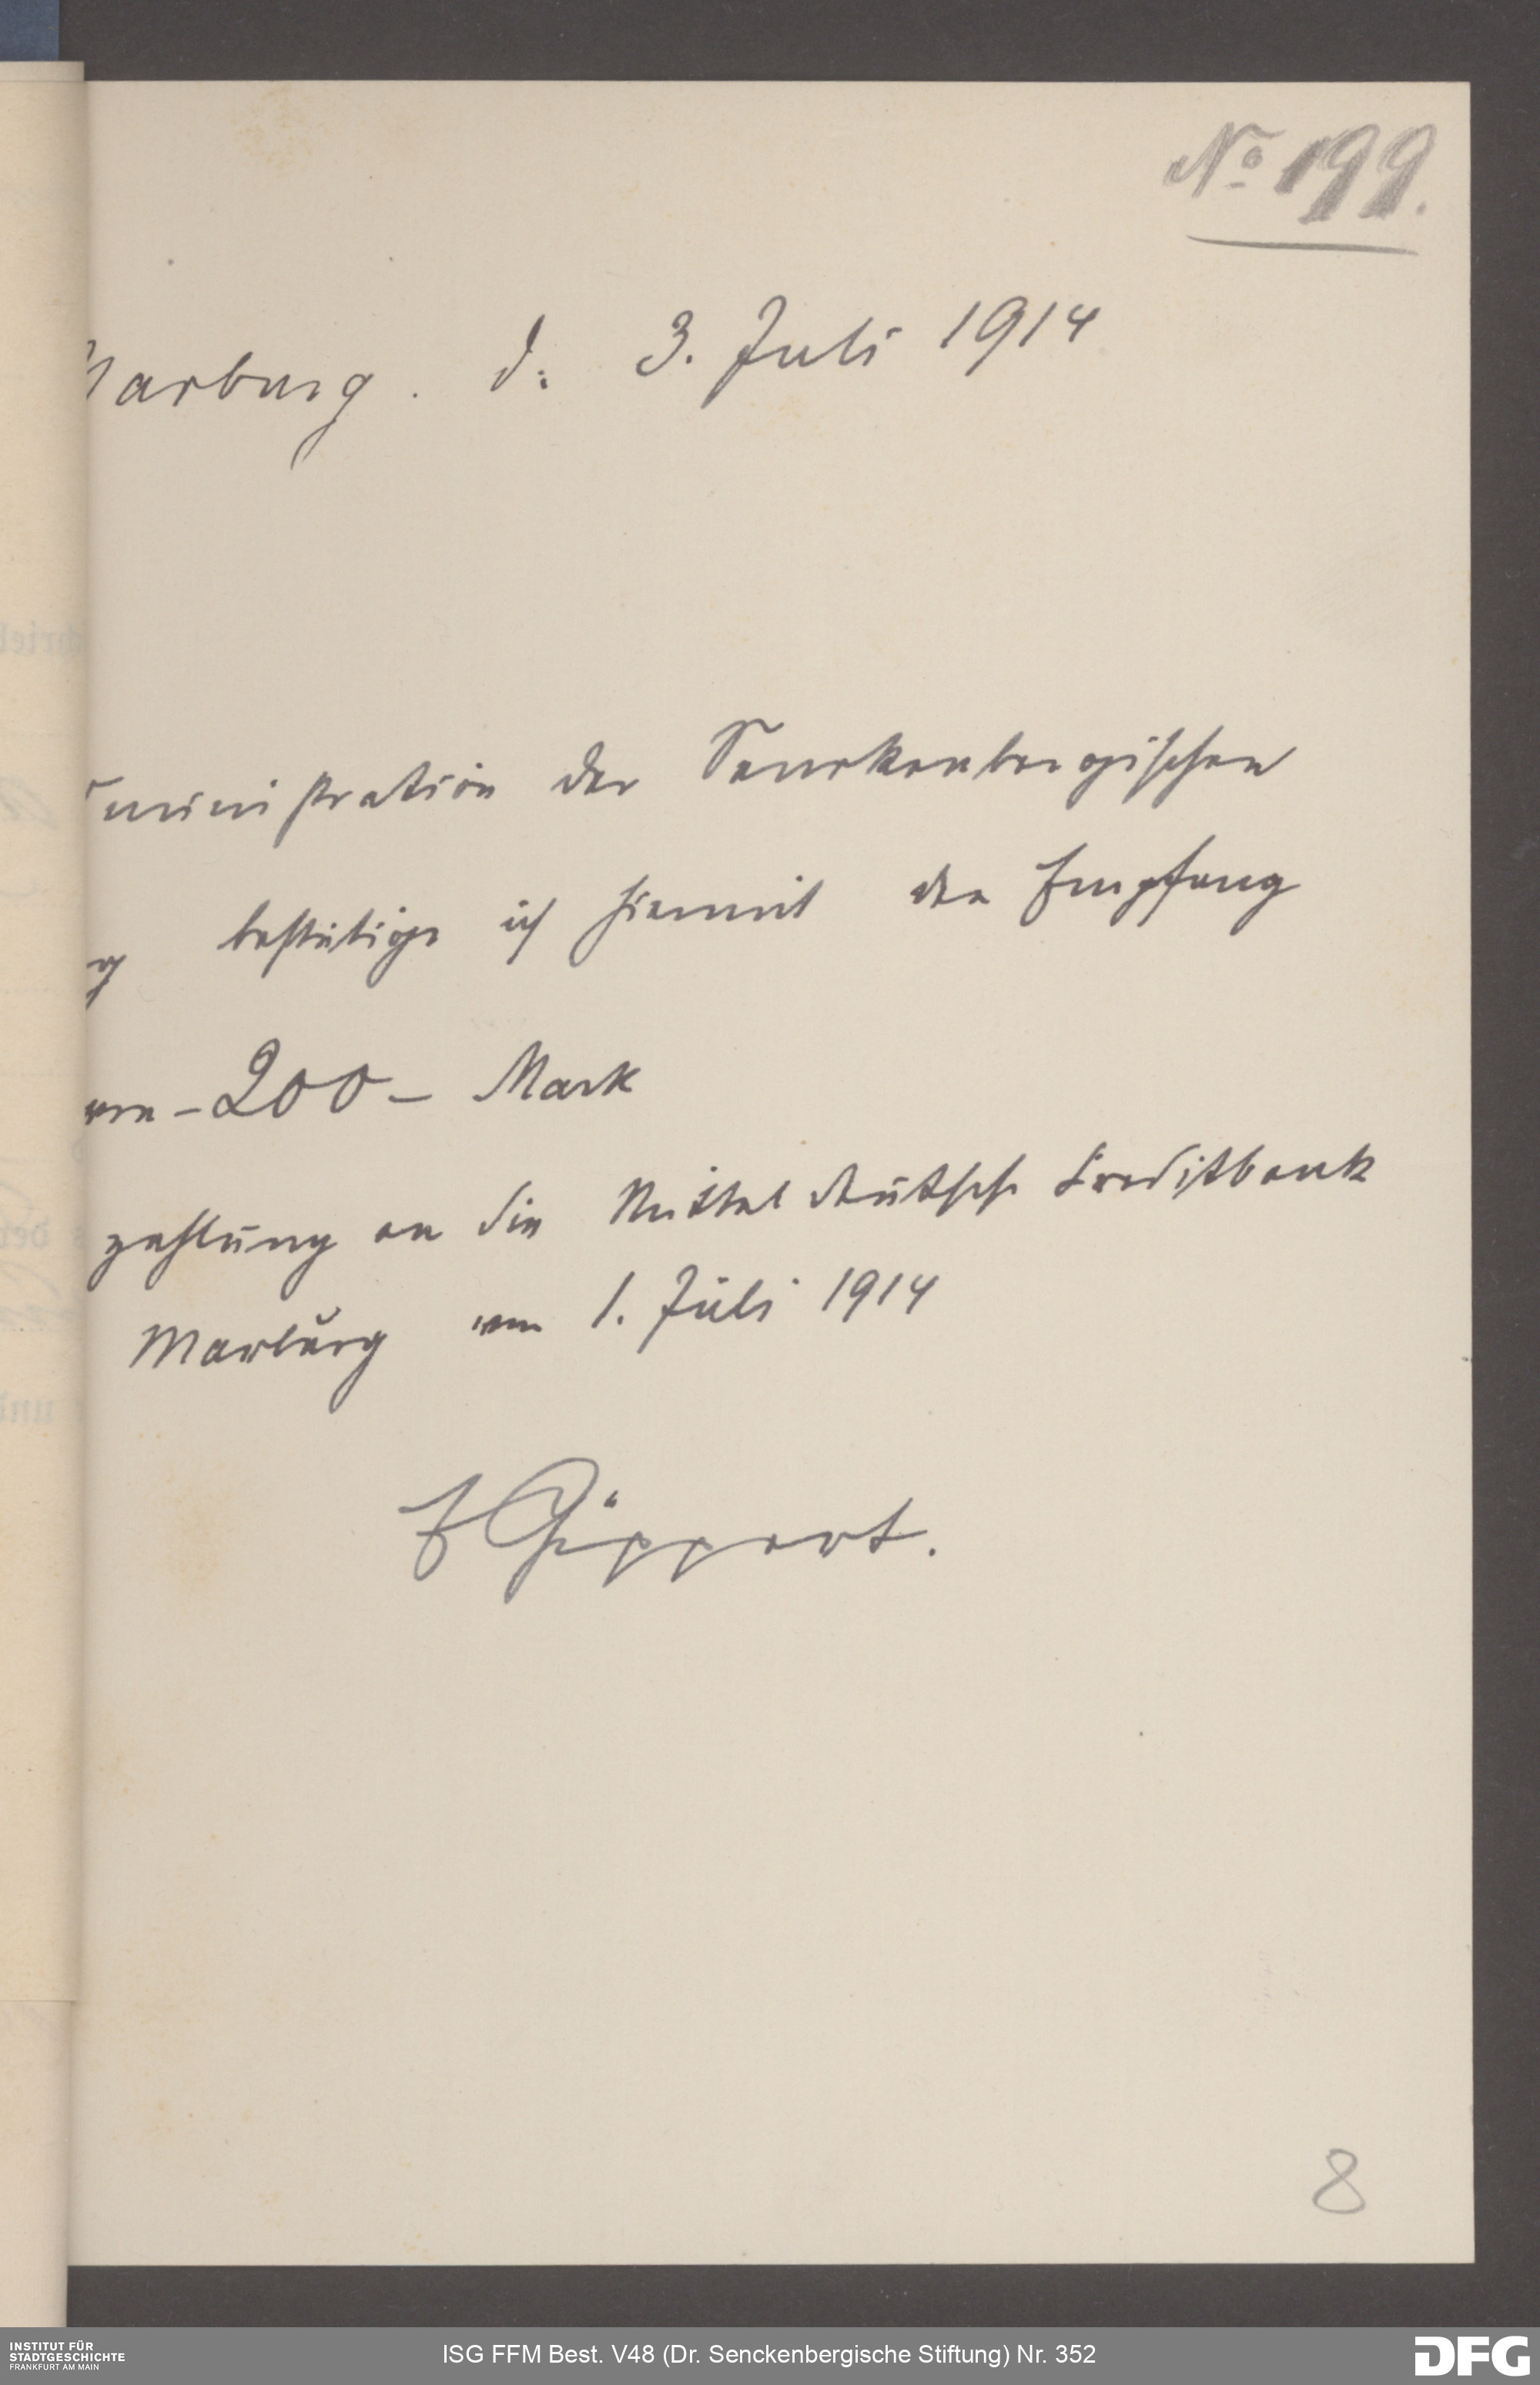 No 199.
Marburg. d. 3. Juli 1914
ministration der Senckenbergischen
g bestätige ich hiermit den Empfang
von - 200 - Mark
zahlung an die Mitteldeutsche Creditbank
Marburg vom 1. Juli 1914
E Göppert.
8
INSTITUT FÜR
STADTGESCHICHTE
FRANKFURT AM MAIN
ISG FFM Best. V48 (Dr. Senckenbergische Stiftung) Nr. 352
DFG